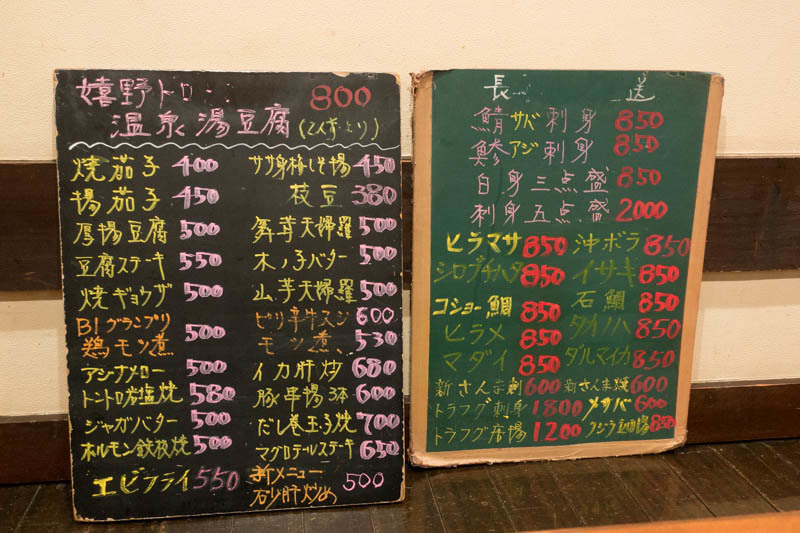 嬉野トロ 800
温泉湯豆腐(2人ずより)
焼茄子 400
揚茄子 450
厚揚豆腐 500
豆腐ステーキ 550
焼ギョウザ 500
B1グランプリ
鶏モツ煮 500
アジナメロー 500
トントロ岩塩焼 580
ジャガバター 500
ホルモン鉄板焼 500
エビフライ 550
ササ身梅しそ揚 450
枝豆 380
舞茸天婦羅 500
木ノ子バター 500
山芋天婦羅 500
ピリ辛牛スジ 600
モツ煮 530
イカ肝炒 680
豚串揚3本 600
だし巻玉子焼 700
マグロテールステーキ 650
新メニュー
砂肝炒め 500
長 送
鯖サバ刺身 850
鯵アジ刺身 850
白身三点盛 850
刺身五点盛 2000
ヒラマサ 850 沖ボラ 850
シロブチハタ 850 イサキ 850
コショー鯛 850 石鯛 850
ヒラメ 850 タカノハ 850
マダイ 850 ダルマイカ 850
新さんま刺 600 新さんま焼 600
トラフグ刺身 1800 メサバ 600
トラフグ唐揚 1200 クジラ 850